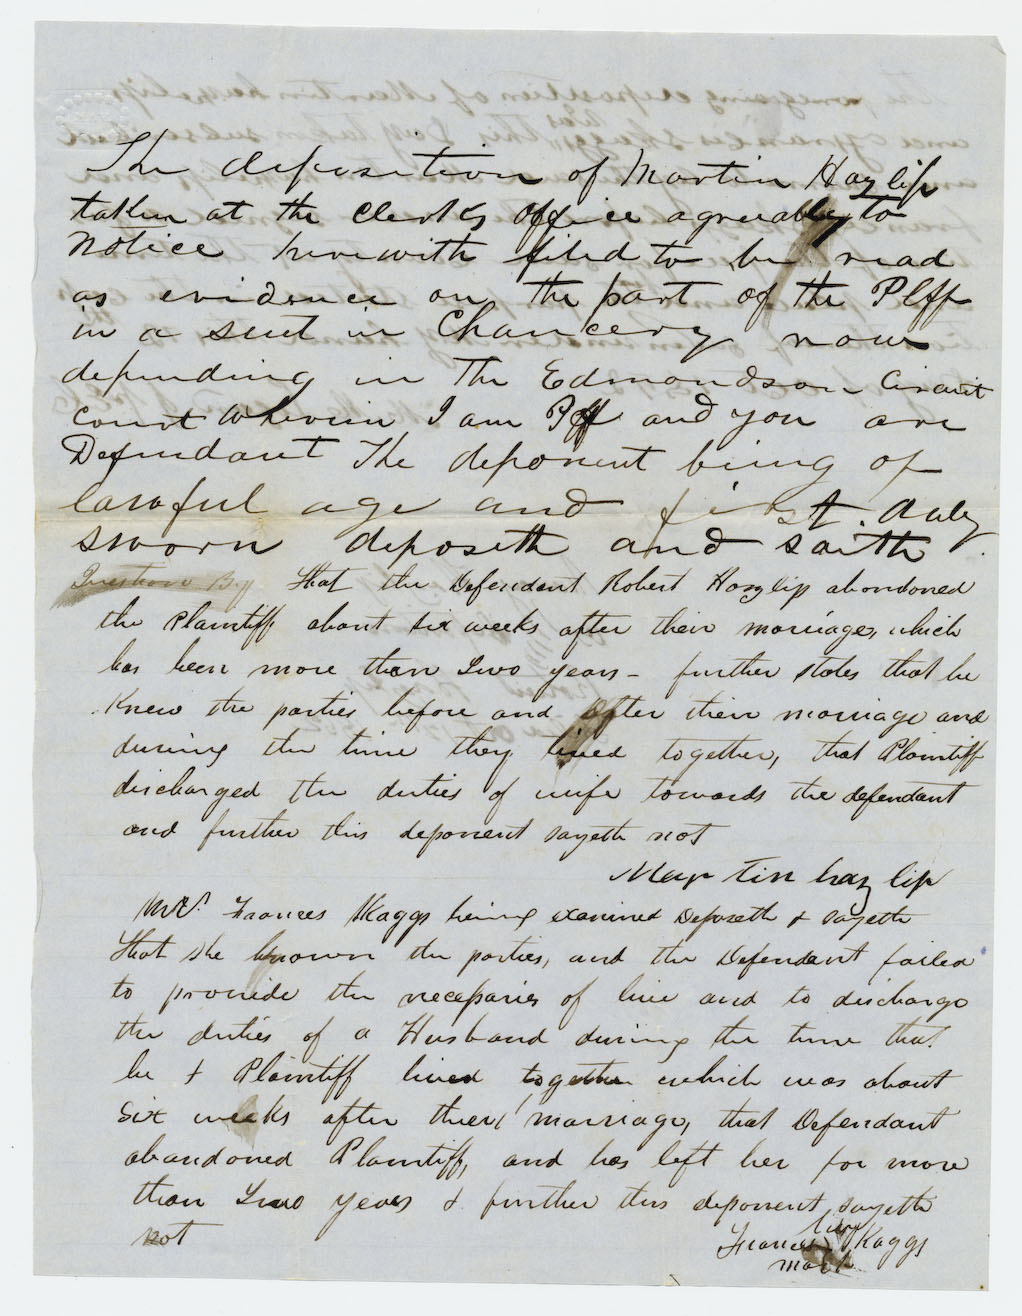 The deposition of Martin Hazlip
taken at the Clerks office agreeably to
Notice herewith filed to be read
as evidence on the part of the Plff
in a suit in Chancery now
depending in The Edmondson Circuit
Court wherein I am Plff and you are
Defendant The deponent being of
lawful age and first duly
sworn deposeth and saith
Question By That the Defendant Robert Hazlip abandoned
the Plaintiff about six weeks after their marriage, which
has been more than Two years - further states that he
Knew the parties before and after their marriage and
during the time they lived together, that Plaintiff
discharged the duties of wife towards the defendant
and further this deponent sayeth not
Martin hazlip
Mrs. Frances Skaggs being examined Deposeth & sayeth
that she known the parties, and the Defendant failed
to provide the necessaries of live and to discharge
the duties of a Husband during the time that
he & Plaintiff lived together which was about
six weeks after their marriage, that Defendant
abandoned Plaintiff, and has left her for more
than Two years & further this deponent sayeth
not
her
Frances Skaggs
mark